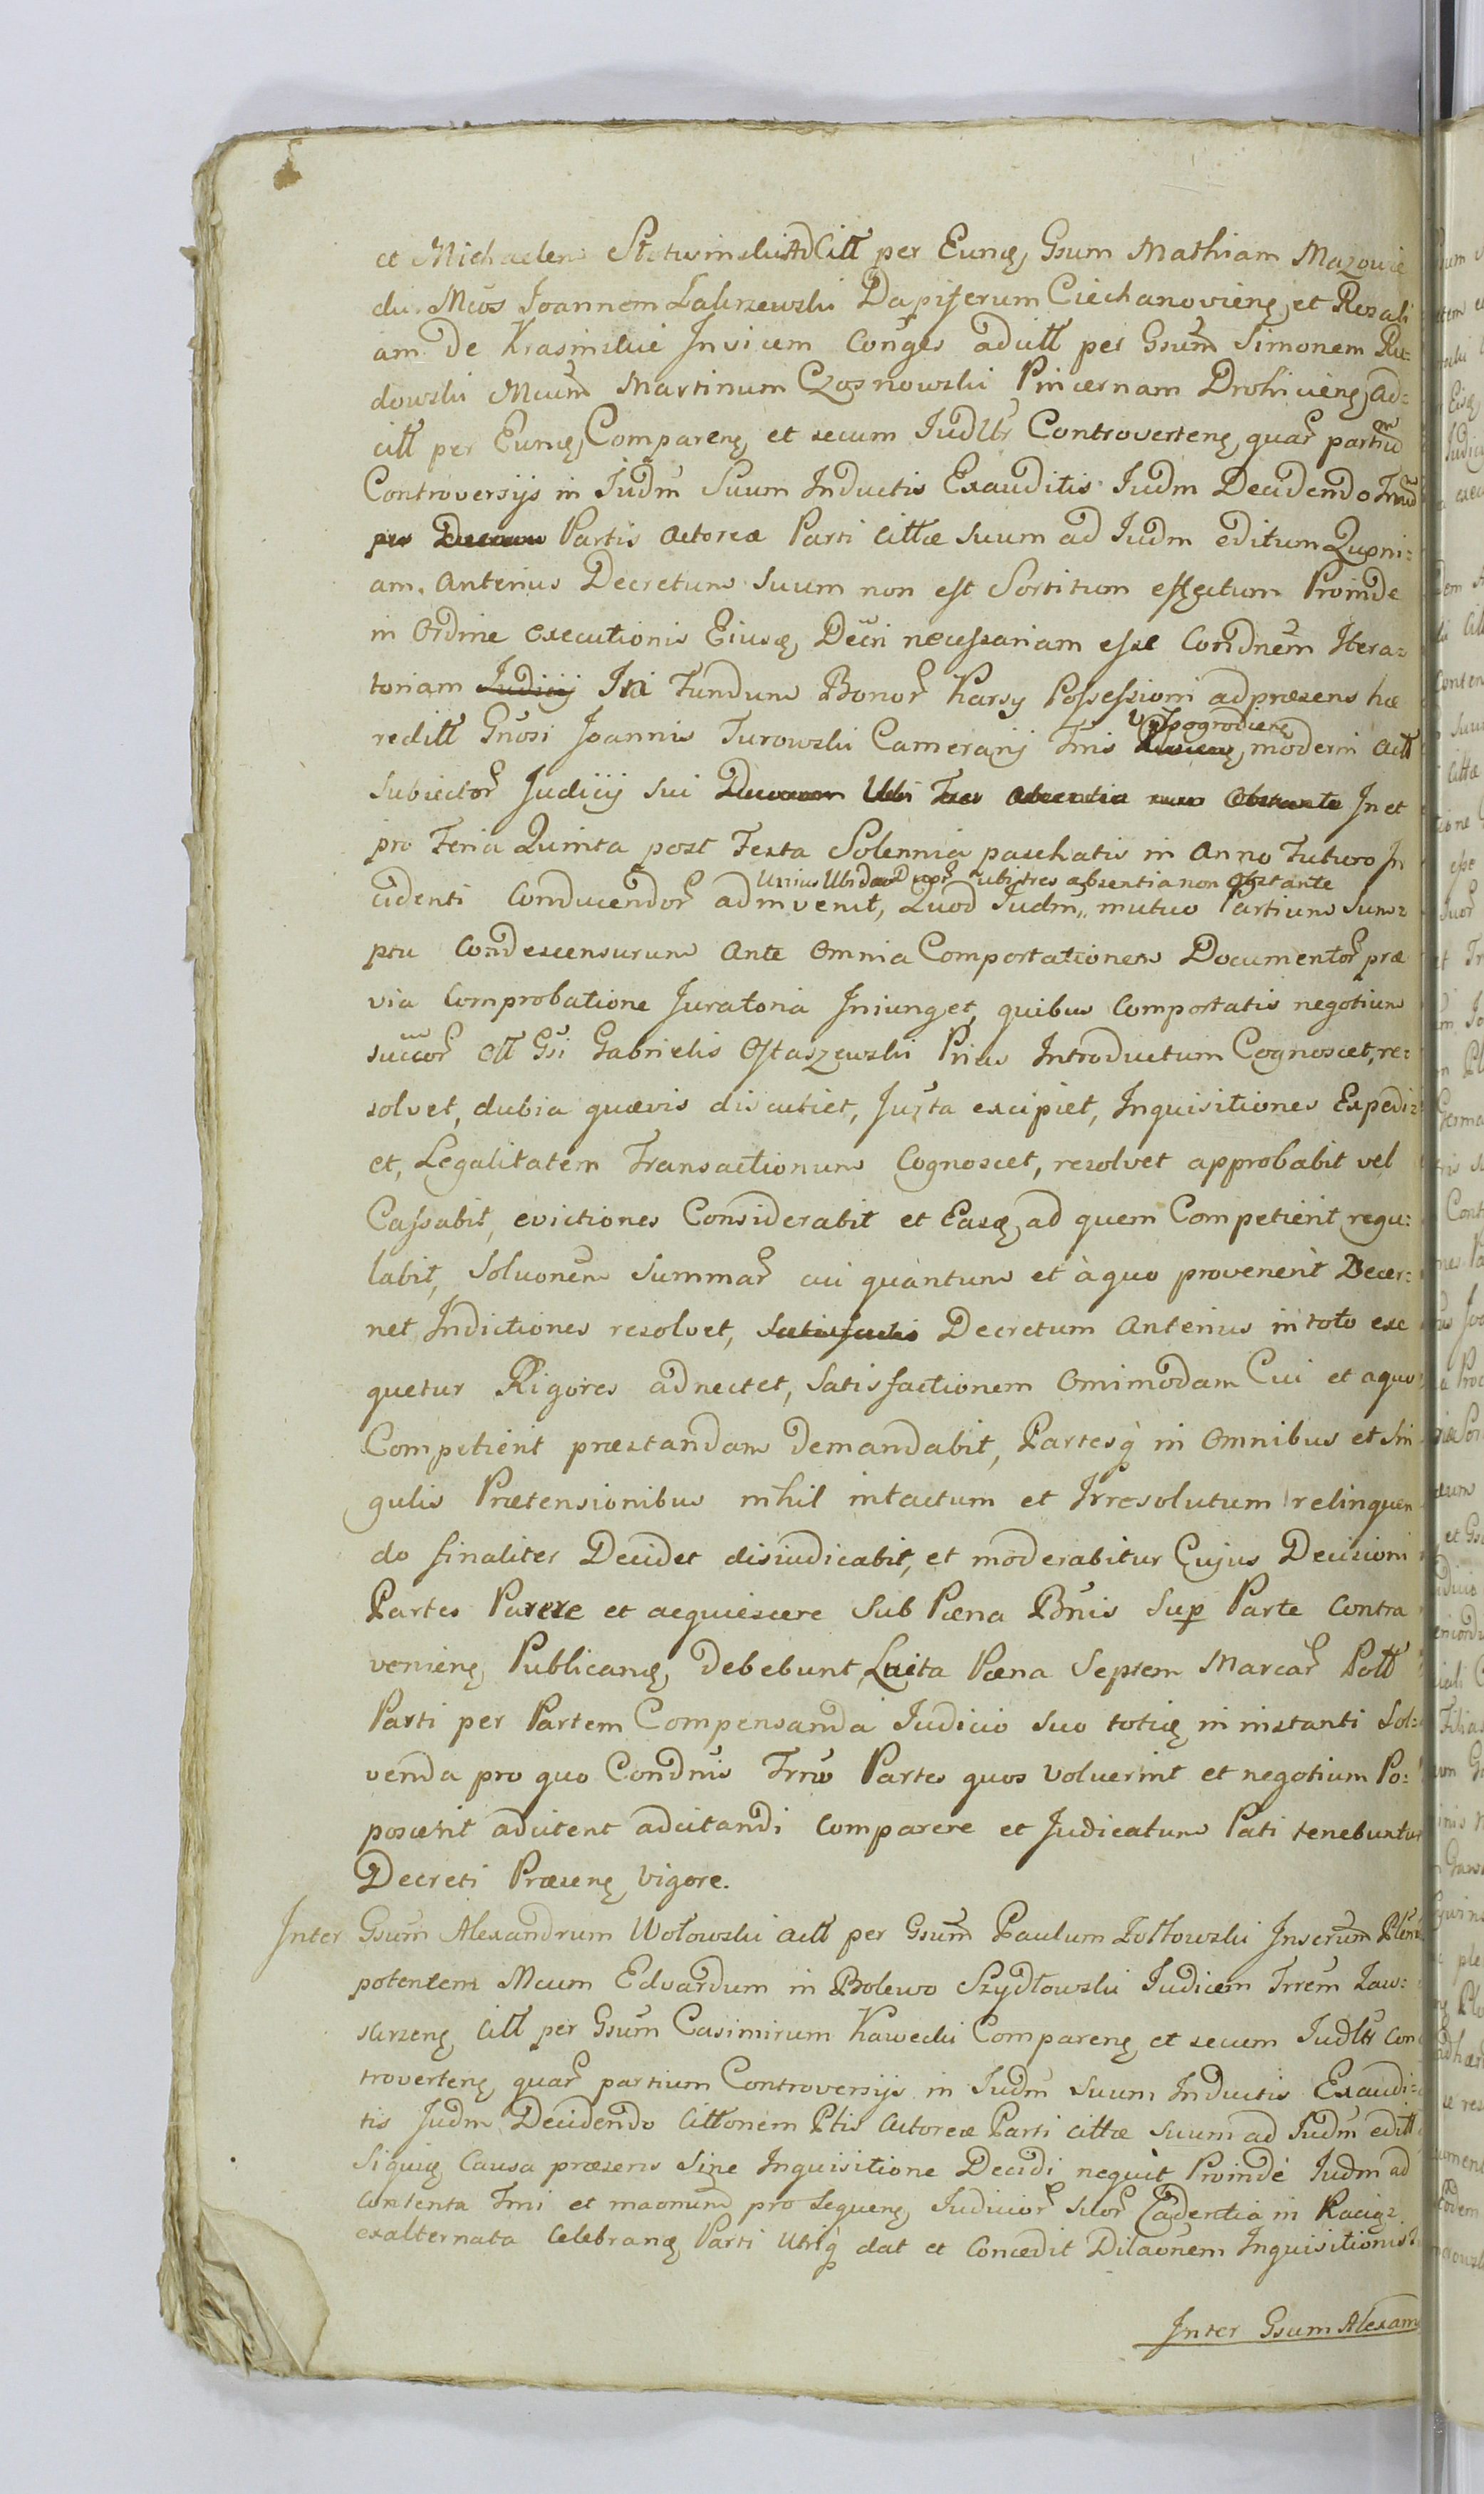 et Michaelem Citt per Eunq, Gsum Mathiam Mazowie
cki. Mcos Joannem Zakrzewski Dapiferum Ciechanovienq, et Rosali
am de Krasinskie Invicem Conges adcitt per Gsum Simonem Ru:
dowski Mcum Martinum Czosnowski Pincernam Drohiciēnq, ad=
citt per Eunq, Comparenq, et secum Iudltr Controvertenq, quar partiu
Controversijs in Iudm Suum Inductis Exauditis Iudm Decidendo
Partis Actoreæ Parti Cittæ Suum ad Iudm editum Quoni=
am. Anterius Decretum Suum non est Sortitum effectum Proinde
in Ordine Executionis Eiusq, Decri necessariam esse Condnem Itera=
toriam Iudicij Isti Fundum Bonor Karsy Possessioni ad præsens hæ
reditt Gnosi Joannis Turowski Camerarij Tris Wyszogrodienq, moderni Actt
Subiector Judicij Sui In et
pro Feria Quinta post Festa Solennia paschatis in Anno Futuro In
Unius Ubi Duor ubi tres absentia non Obstante
cidenti Conducendor adinvenit, Quod Iudm, mutuo Partium Sum=
ptu Condescensurum Ante Omnia Comportationem Documentor præ
via Comprobatione Juratoria Iniunget, quibus Comportatis negotium
succor Ott Gsi Gabrielis Ostaszewski Prius Introductum Cognoscet, re=
solvet, dubia quævis discutiet, Justa excipiet, Inquisitiones Expedi=
et, Legalitatem Transactionum Cognoscet, resolvet approbabit vel
Cassabit, evictiones Considerabit et Easq, ad quem Competierit regu:
labit, Soluonem Summar cui quantum et à quo provenerit Decer:
net, Indictiones resolvet, Satisfactio Decretum Anterius in toto exe
quetur Rigores adnectet, Satisfactionem Omimodam Cui et a quo
Competierit præstandam demandabit, Partesq in Omnibus et Sin
gulis Prætensionibus nihil intactum et Irresolutum relinquen
do finaliter Decidet disiudicabit, et moderabitur Cujus Decisioni
Partes Parere et acquiescere Sub Pæna Bnis Sup Parte Contra
venienq, Publicanq, debebunt, Luita Pæna Septem Marcar Pott
Parti per Partem Compensanda Iudicio Suo totiq, in instanti Sol:
venda pro quo Condnis Trno Partes quos Voluerint et negotium Po:
poscerit adcitent adcitandi Comparere et Judicatum Pati tenebuntur
Decreti Præsenq, Vigore.
Inter Gsum Alexandrum Wołowski Actt per Gsum Paulum Żołtowski Inscrum Pleni
potentem Mcum Edvardum in Bolewo Szydłowski Iudicem Trrem Zaw:
skrzenq, Citt per Gsum Casimirum Kawecki Comparenq, et secum Iudltr Con
trovertenq, quar partium Controversijs in Iudm Suum Inductis Exaudi:
tis Judm Decidendo Cittonem Ptis Actoreæ Parti Cittæ Suum ad Iudm editt
Siquiq, Causa præsens Sine Inquisitione Decidi nequit Proinde Iudm ad
Contenta Trni et pro Sequenq, Iudicior Suor Cadentia in Raciąz
exalternata Celebranq, Parti Utriq dat et Concedit Dilaonem Inquisitionis
Inter Gsum Alexan